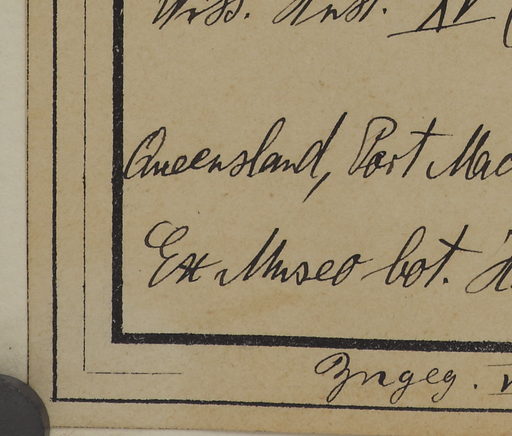 Wiss. Anst. XV (
Queensland, Port Mac
Ex Museo bot. H
Zngeg. v